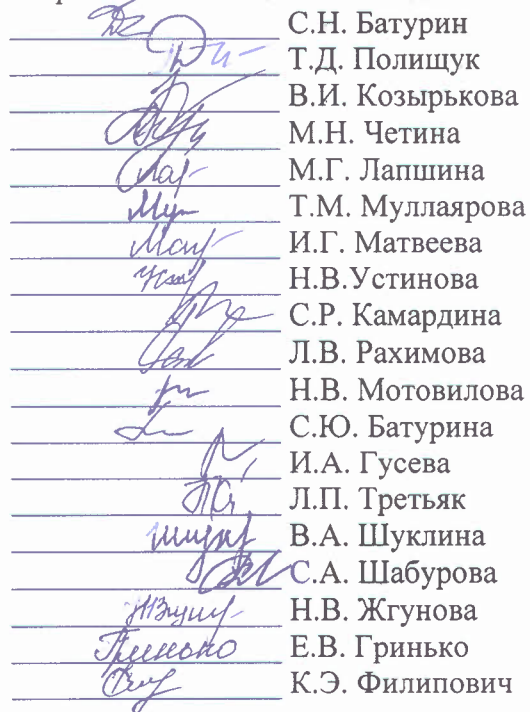 С.Н. Батурин
Т.Д. Полищук
В.И. Козырькова
М.Н. Четина
М.Г. Лапшина
Т.М. Муллаярова
И.Г. Матвеева
Н.В.Устинова
С.Р. Камардина
Л.В. Рахимова
Н.В. Мотовилова
С.Ю. Батурина
И.А. Гусева
Л.П. Третьяк
В.А. Шуклина
С.А. Шабурова
Н.В. Жгунова
Гринько Е.В. Гринько
К.Э. Филипович